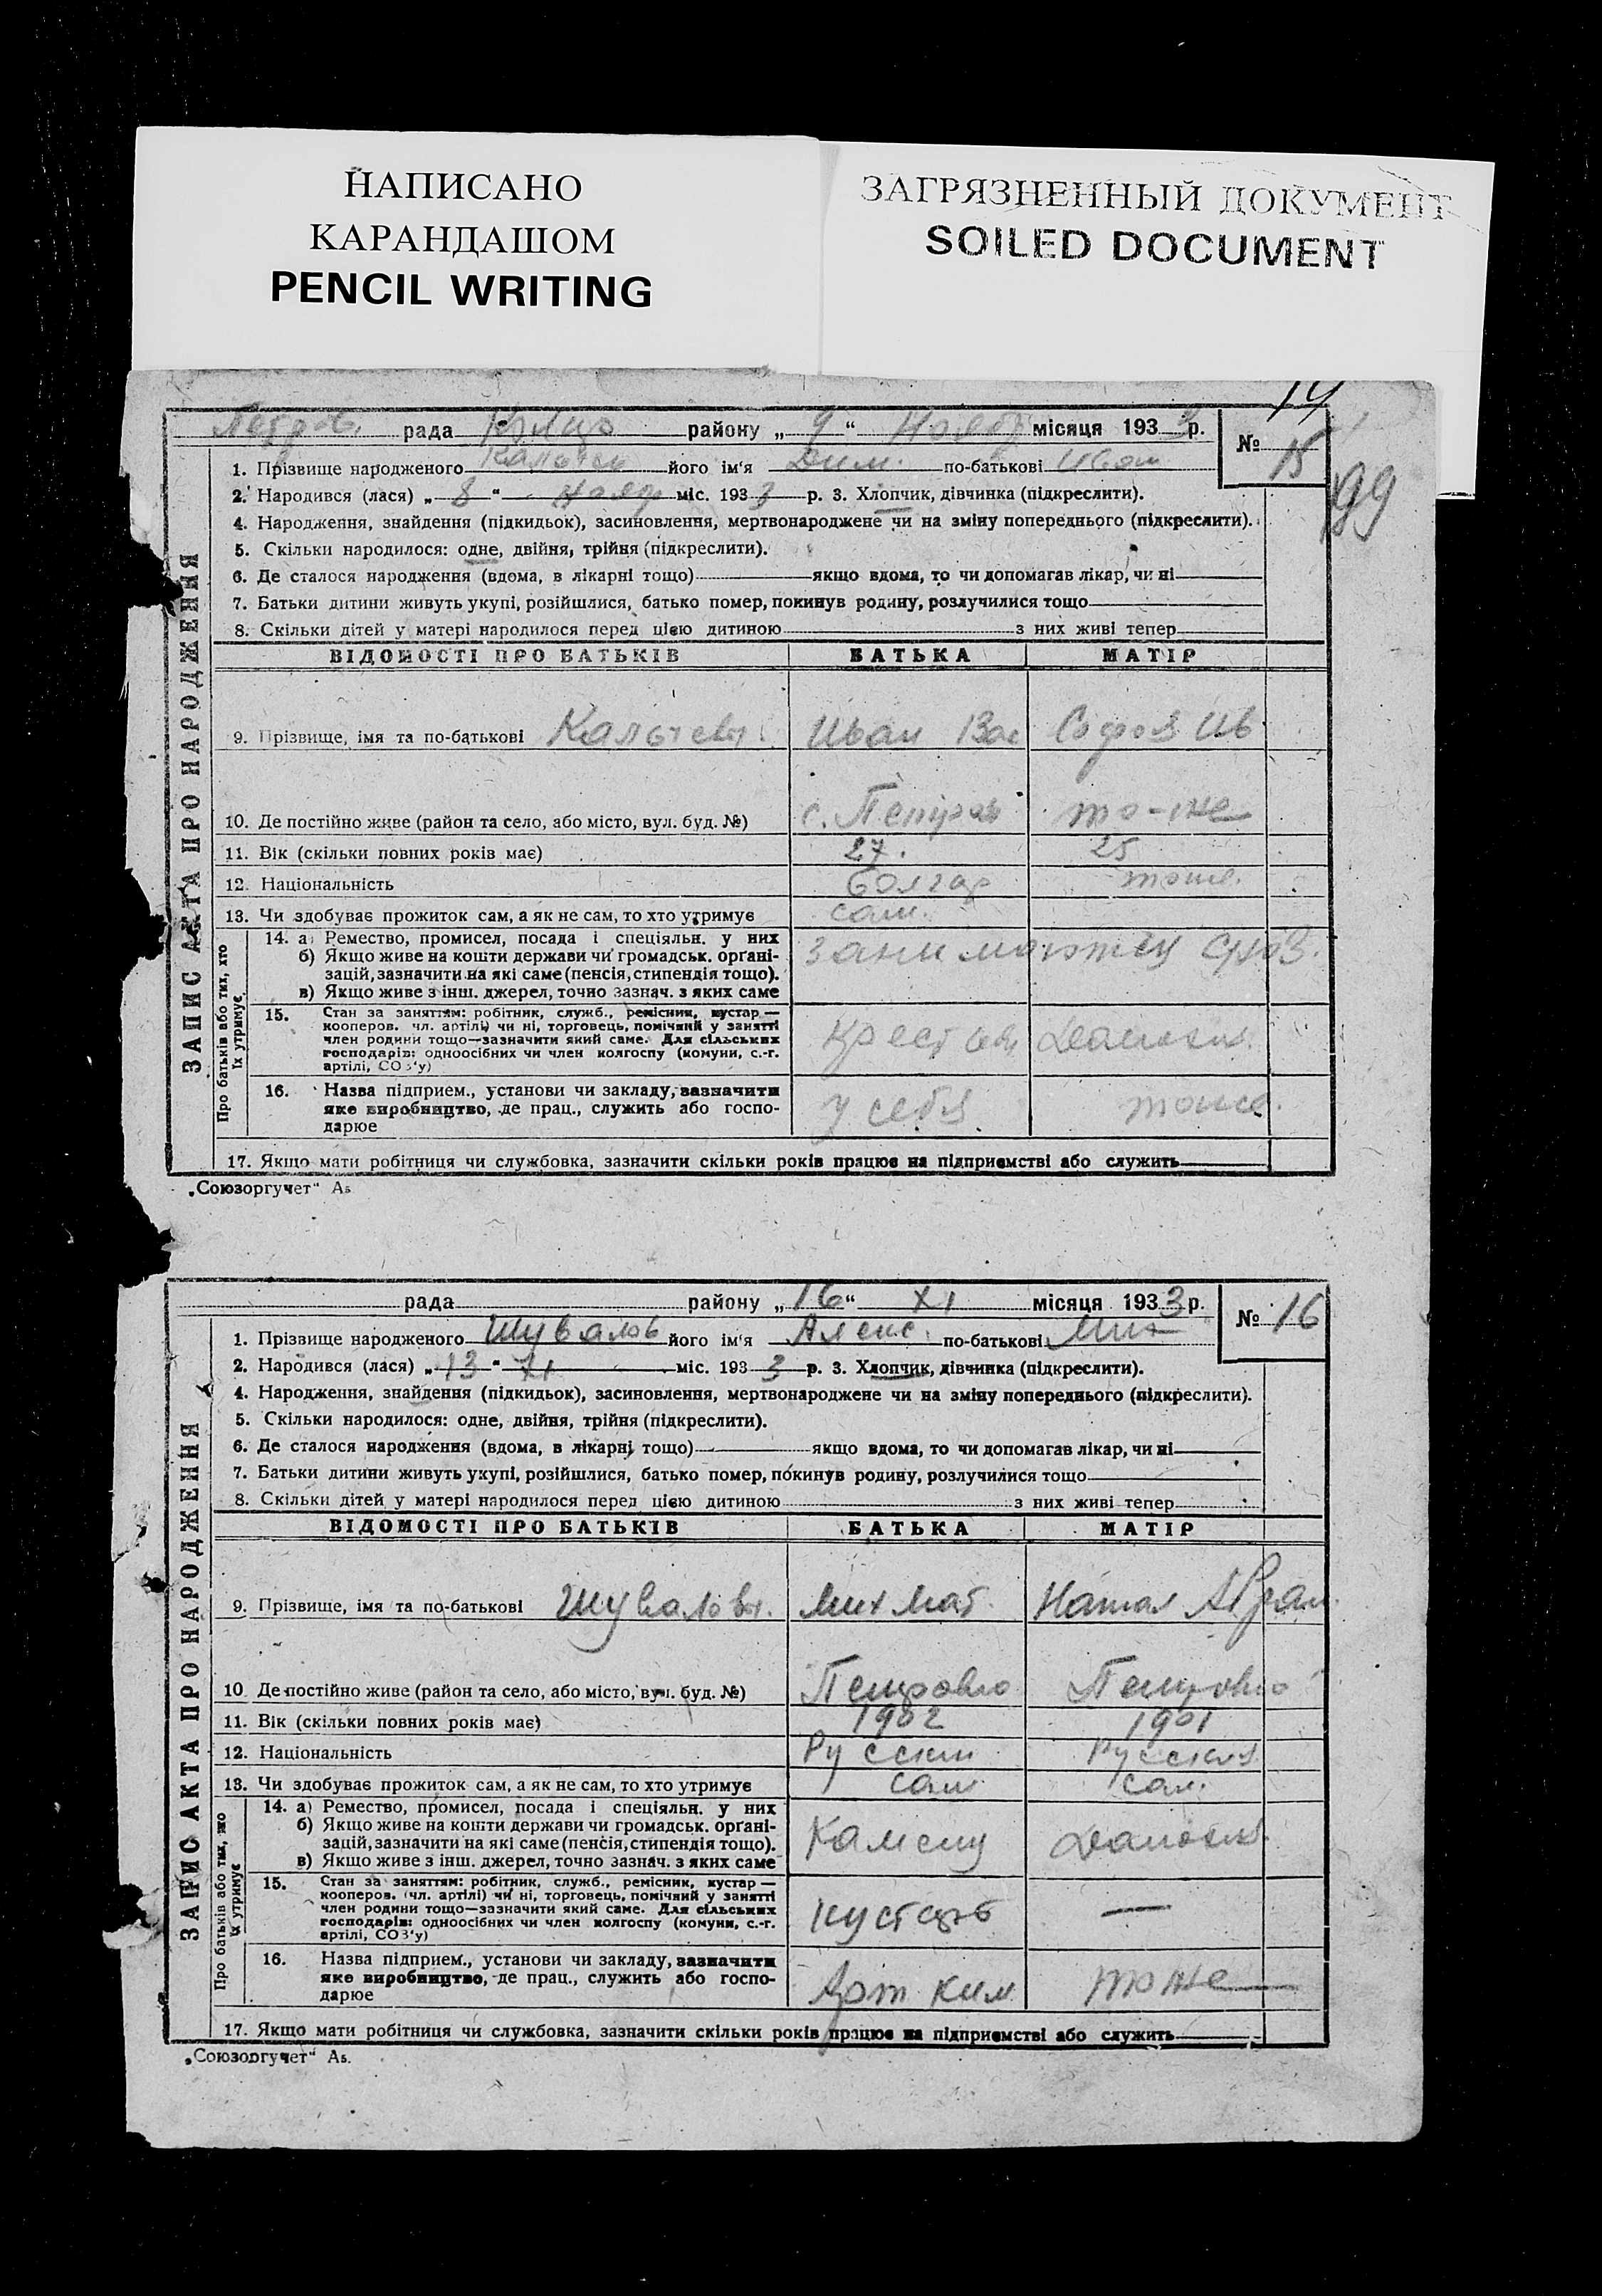 НАПИСАНО
КАРАНДАШОМ
PENCIL WRITING
ЗАГРЯЗНЕННЫЙ ДОКУМЕНТ
SOILED DOCUMENT
14
99
ЗАПИС АКТА ПРО НАРОДЖЕННЯ
Петров. рада району „ 9 “ Ноябр місяця 1933 р. № 15
1. Прізвище народженого його ім'я Дим. по-батькові Иван
2. Народився (лася) „ 8 “ Нояр міс. 1933 р. 3. Хлопчик, дівчинка (підкреслити).
4. Народження, знайдення (підкидьок), засиновлення, мертвонароджене чи на зміну попереднього (підкреслити).
5. Скільки народилося: одне, двійня, трійня (підкреслити).
6. Де сталося народження (вдома, в лікарні тощо) якщо вдома, то чи допомагав лікар, чи ні
7. Батьки дитини живуть укупі, розійшлися, батько помер, покинув родину, розлучилися тощо
8. Скільки дітей у матері народилося перед цією дитиною з них живі тепер
ВІДОМОСТІ ПРО БАТЬКІВ БАТЬКА МАТІР
9. Прізвище, імя та по-батькові Калычевы Иван Вас София Ив
10. Де постійно живе (район та село, або місто, вул. буд. №) с. Петров то-же
11. Вік (скільки повних років має) 27. 25
12. Національність болгар тоже.
13. Чи здобуває прожиток сам, а як не сам, то хто утримує сам.
Про батьків або тих, хто їх утримує
14. а) Ремество, промисел, посада і спеціяльн. у них
б) Якщо живе на кошти держави чи громадськ. органі-
зацій, зазначити на які саме (пенсія, стипендія тощо).
в) Якщо живе з інш. джерел, точно зазнач. з яких саме
15. Стан за заняттям: робітник, служб., ремісник, кустар —
кооперов. чл. артілі) чи ні, торговець, помічний у занятті
член родини тощо—зазначити який саме. Для сільських
господарів: одноосібних чи член колгоспу (комуни, с.-г.
артілі, СОЗ'у)
16. Назва підприєм., установи чи закладу, зазначити
яке виробництво, де прац., служить або госпо-
дарює у себя тоже.
17. Якщо мати робітниця чи службовка, зазначити скільки років працює на підприємстві або служить
„Союзоргучет“ А5
ЗАПИС АКТА ПРО НАРОДЖЕННЯ
рада району „ 16 “ XI місяця 1933 р. № 16
1. Прізвище народженого Шувалов його ім'я Алекс. по-батькові Мих
2. Народився (лася) „ 13 “ XI міс. 1933 р. 3. Хлопчик, дівчинка (підкреслити).
4. Народження, знайдення (підкидьок), засиновлення, мертвонароджене чи на зміну попереднього (підкреслити).
5. Скільки народилося: одне, двійня, трійня (підкреслити).
6. Де сталося народження (вдома, в лікарні тощо) якщо вдома, то чи допомагав лікар, чи ні
7. Батьки дитини живуть укупі, розійшлися, батько помер, покинув родину, розлучилися тощо
8. Скільки дітей у матері народилося перед цією дитиною з них живі тепер
ВІДОМОСТІ ПРО БАТЬКІВ БАТЬКА МАТІР
9. Прізвище, імя та по-батькові Шуваловы. Мих Мат. Натал Абрам.
10. Де постійно живе (район та село, або місто, вул. буд. №) Петровко Петровко
11. Вік (скільки повних років має) 1902 1901
12. Національність Русский Русская
13. Чи здобуває прожиток сам, а як не сам, то хто утримує сам сам.
Про батьків або тих, хто їх утримує
14. а) Ремество, промисел, посада і спеціяльн. у них
б) Якщо живе на кошти держави чи громадськ. органі-
зацій, зазначити на які саме (пенсія, стипендія тощо).
в) Якщо живе з інш. джерел, точно зазнач. з яких саме
15. Стан за заняттям: робітник, служб., ремісник, кустар —
кооперов. (чл. артілі) чи ні, торговець, помічний у занятті
член родини тощо—зазначити який саме. Для сільських
господарів: одноосібних чи член колгоспу (комуни, с.-г.
артілі, СОЗ'у) кустарь —
16. Назва підприєм., установи чи закладу, зазначити
яке виробництво, де прац., служить або госпо-
дарює Арт Ким тоже
17. Якщо мати робітниця чи службовка, зазначити скільки років працює на підприємстві або служить
„Союзоргучет“ А5.